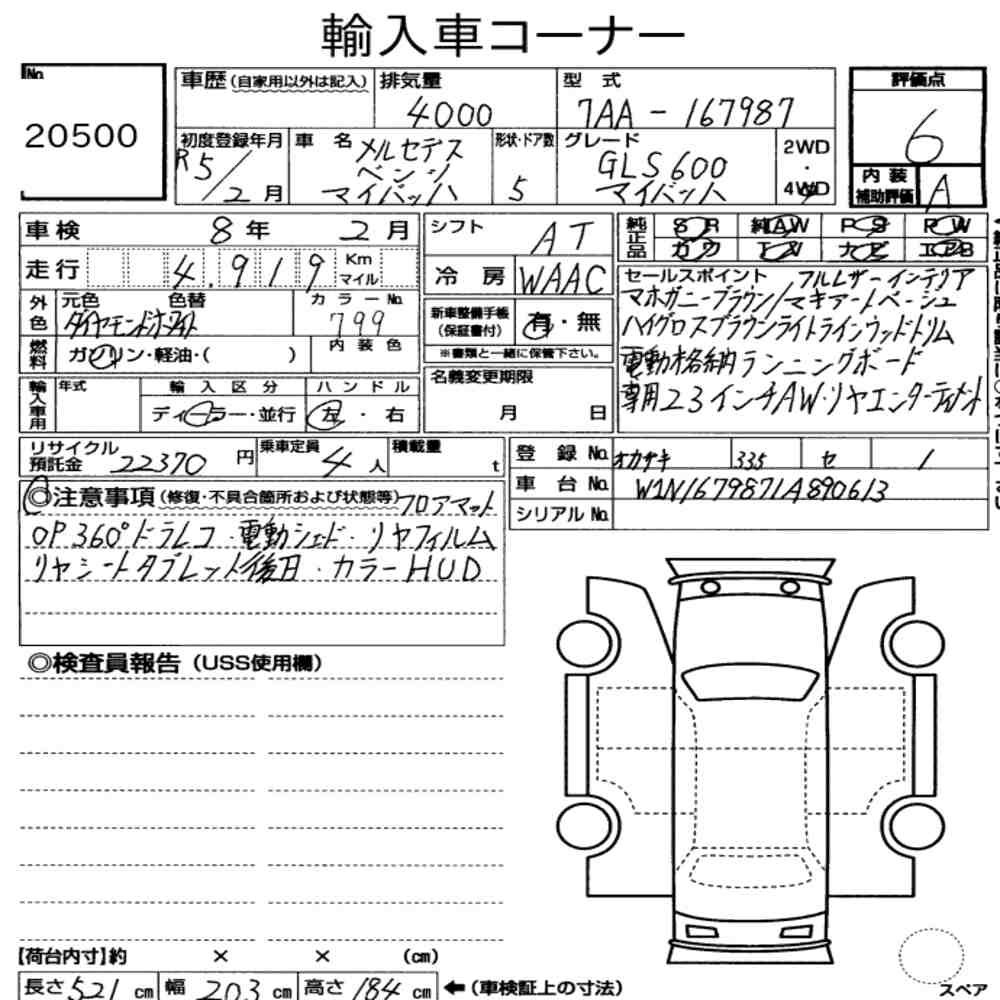 輸入車コーナー
No.
20500
車歴(自家用以外は記入)
排気量
4000
型 式
7AA-167987
評価点
6
初度登録年月
R5/2月
車 名
メルセデス
ベンツ
マイバッハ
形状・ドア数
5
グレード
GLS600
マイバッハ
2WD
・
4WD
内装
補助評価
A
車検 8年 2月
シフト AT
純正品
SR 純AW PS PW
カワ TV ナビ エアB
走行 4,919 Km
マイル
冷房 WAAC
セールスポイント フルレザーインテリア
マホガニーブラウン/マキアートベージュ
ハイグロスブラウンライトラインウッドトリム
電動格納ランニングボード
専用23インチAW・リヤエンターテイメント
外色
元色 色替
ダイヤモンドホワイト
カラーNo.
799
新車整備手帳
(保証書付)
有・無
燃料
ガソリン・軽油・( )
内装色
※書類と一緒に保管下さい。
輸入車用
年式
輸入区分
ディーラー・並行
ハンドル
左・右
名義変更期限
月 日
リサイクル
預託金 22370 円
乗車定員
4人
積載量
t
登録No. オカザキ 335 セ 1
車台No. W1N1679871A890613
シリアルNo.
◎注意事項(修復・不具合箇所および状態等)フロアマット
OP360°ドラレコ・電動シェード・リヤフィルム
リヤシートタブレット後日・カラーHUD
◎検査員報告(USS使用欄)
【荷台内寸】約 × × (cm)
長さ521cm 幅203cm 高さ184cm ←(車検証上の寸法)
スペア